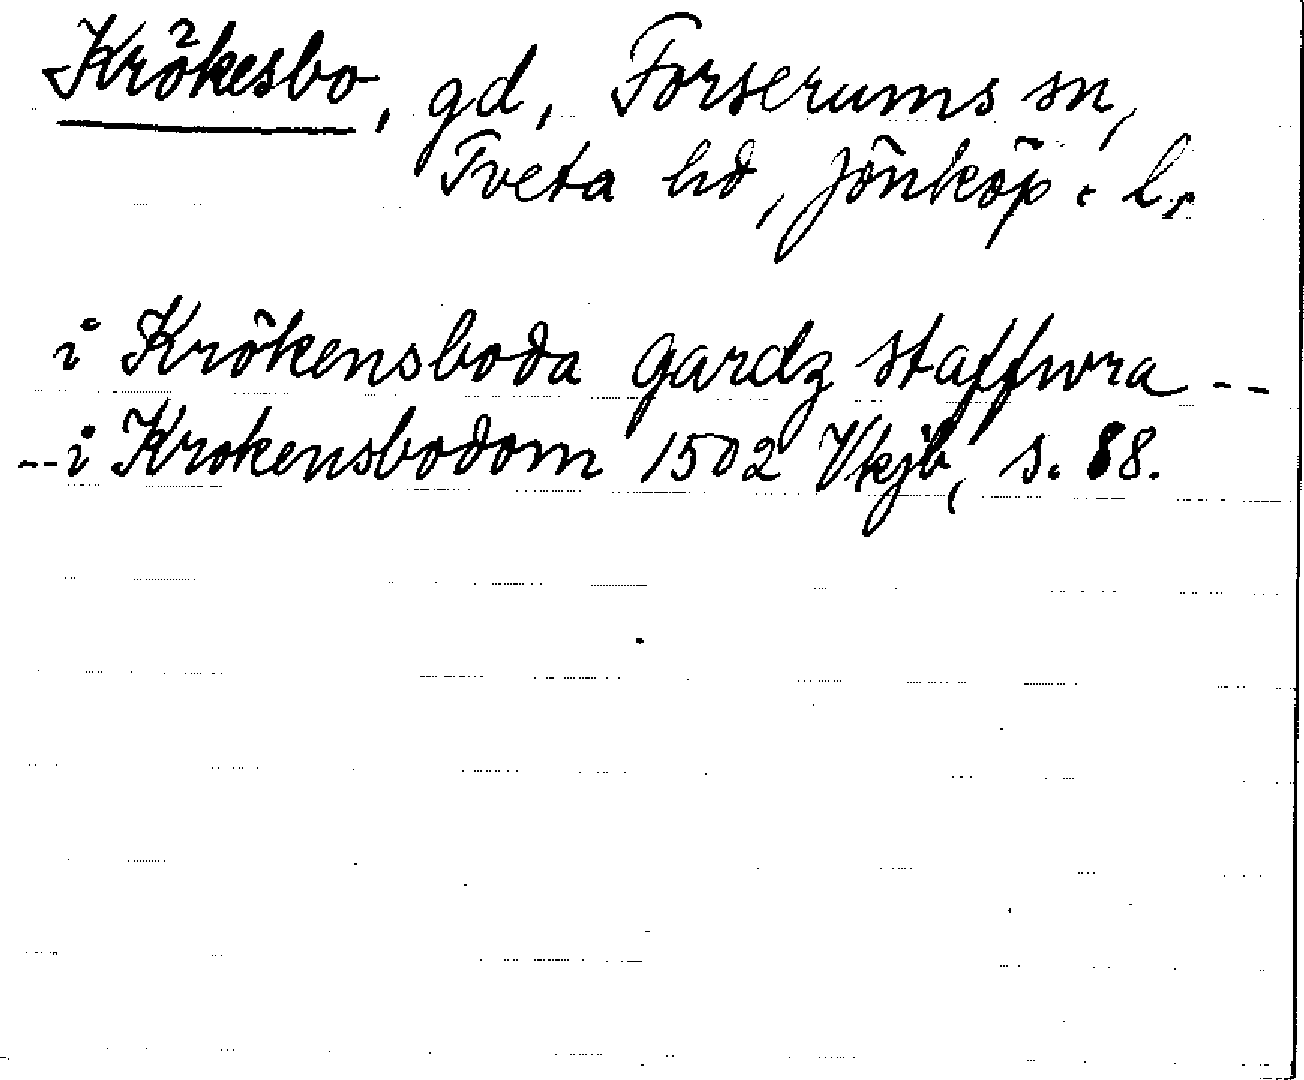 Krökesbo, gd, Forserums sn,
Tveta hd, Jönköp. l.
i Krökensboda gardz staffwra --
--i Krokensbodom 1502 Vkjb, s. 88.